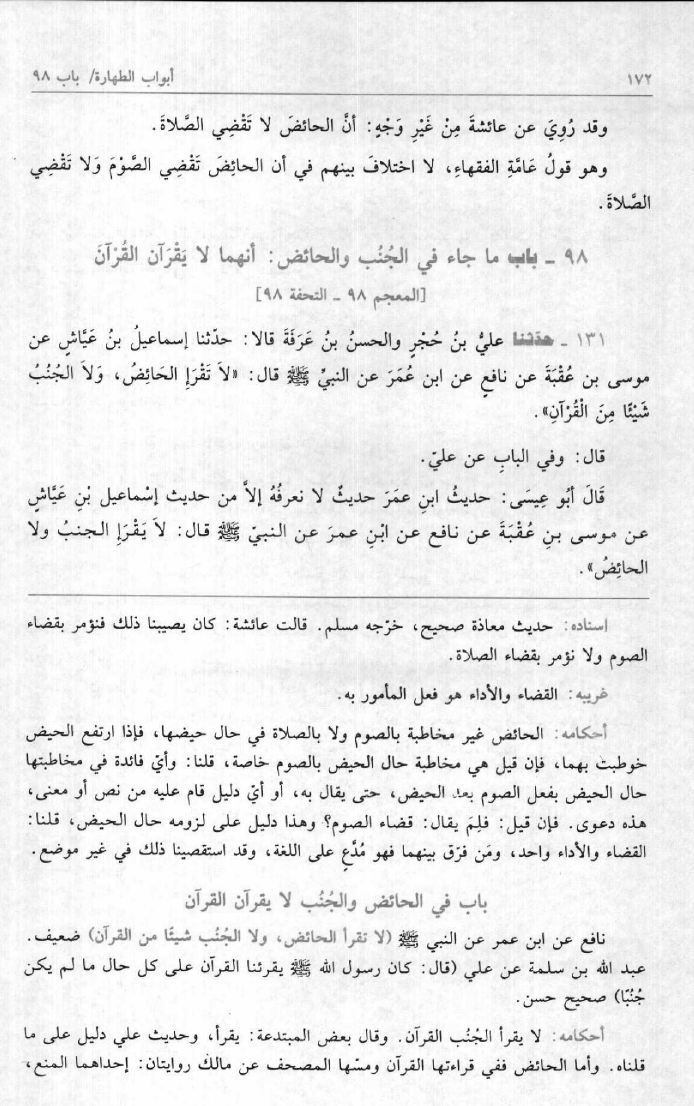 ١٧٢ أبواب الطهارة/ باب ٩٨
وقد رُوِيَ عن عائشةَ مِنْ غَيْرِ وَجْهٍ: أنَّ الحائضَ لا تَقْضِي الصَّلاةَ.
وهو قولُ عَامَّةِ الفقهاءِ، لا اختلافَ بينهم في أن الحائِضَ تَقْضِي الصَّوْمَ وَلا تَقْضِي
الصَّلاةَ.
٩٨ ـ باب ما جاء في الجُنُب والحائض: أنهما لا يَقْرَآن القُرْآنَ
[المعجم ٩٨ ـ التحفة ٩٨]
١٣١ ـ حدّثنا عليُّ بنُ حُجْرٍ والحسنُ بنُ عَرَفَةَ قالا: حدّثنا إسماعيلُ بنُ عَيَّاشٍ عن
موسى بن عُقْبَةَ عن نافعٍ عن ابن عُمَرَ عن النبيِّ ﷺ قال: «لاَ تَقْرَإِ الحَائِضُ، وَلاَ الجُنُبُ
شَيْئًا مِنَ الْقُرْآنِ».
قال: وفي البابِ عن عليّ.
قَالَ أَبُو عِيسَى: حديثُ ابنِ عمَرَ حديثٌ لا نعرفُهُ إلاَّ من حديث إسْماعيل بْنِ عَيَّاشٍ
عن موسى بنِ عُقْبَةَ عن نافع عن ابْنِ عمرَ عن النبيّ ﷺ قال: لاَ يَقْرَإِ الجنبُ ولا
الحائِضُ».
اسناده: حديث معاذة صحيح، خرّجه مسلم. قالت عائشة: كان يصيبنا ذلك فنؤمر بقضاء
الصوم ولا نؤمر بقضاء الصلاة.
غريبه: القضاء والأداء هو فعل المأمور به.
أحكامه: الحائض غير مخاطبة بالصوم ولا بالصلاة في حال حيضها، فإذا ارتفع الحيض
خوطبت بهما، فإن قيل هي مخاطبة حال الحيض بالصوم خاصة، قلنا: وأيّ فائدة في مخاطبتها
حال الحيض بفعل الصوم بعد الحيض، حتى يقال به، أو أيّ دليل قام عليه من نص أو معنى،
هذه دعوى. فإن قيل: فلِمَ يقال: قضاء الصوم؟ وهذا دليل على لزومه حال الحيض، قلنا:
القضاء والأداء واحد، ومَن فرّق بينهما فهو مُدَّعٍ على اللغة، وقد استقصينا ذلك في غير موضع.
باب في الحائض والجُنُب لا يقرآن القرآن
نافع عن ابن عمر عن النبي ﷺ (لا تقرأ الحائض، ولا الجُنُب شيئًا من القرآن) ضعيف.
عبد الله بن سلمة عن علي (قال: كان رسول الله ﷺ يقرئنا القرآن على كل حال ما لم يكن
جُنُبًا) صحيح حسن.
أحكامه: لا يقرأ الجُنُب القرآن. وقال بعض المبتدعة: يقرأ، وحديث علي دليل على ما
قلناه. وأما الحائض ففي قراءتها القرآن ومسّها المصحف عن مالك روايتان: إحداهما المنع،